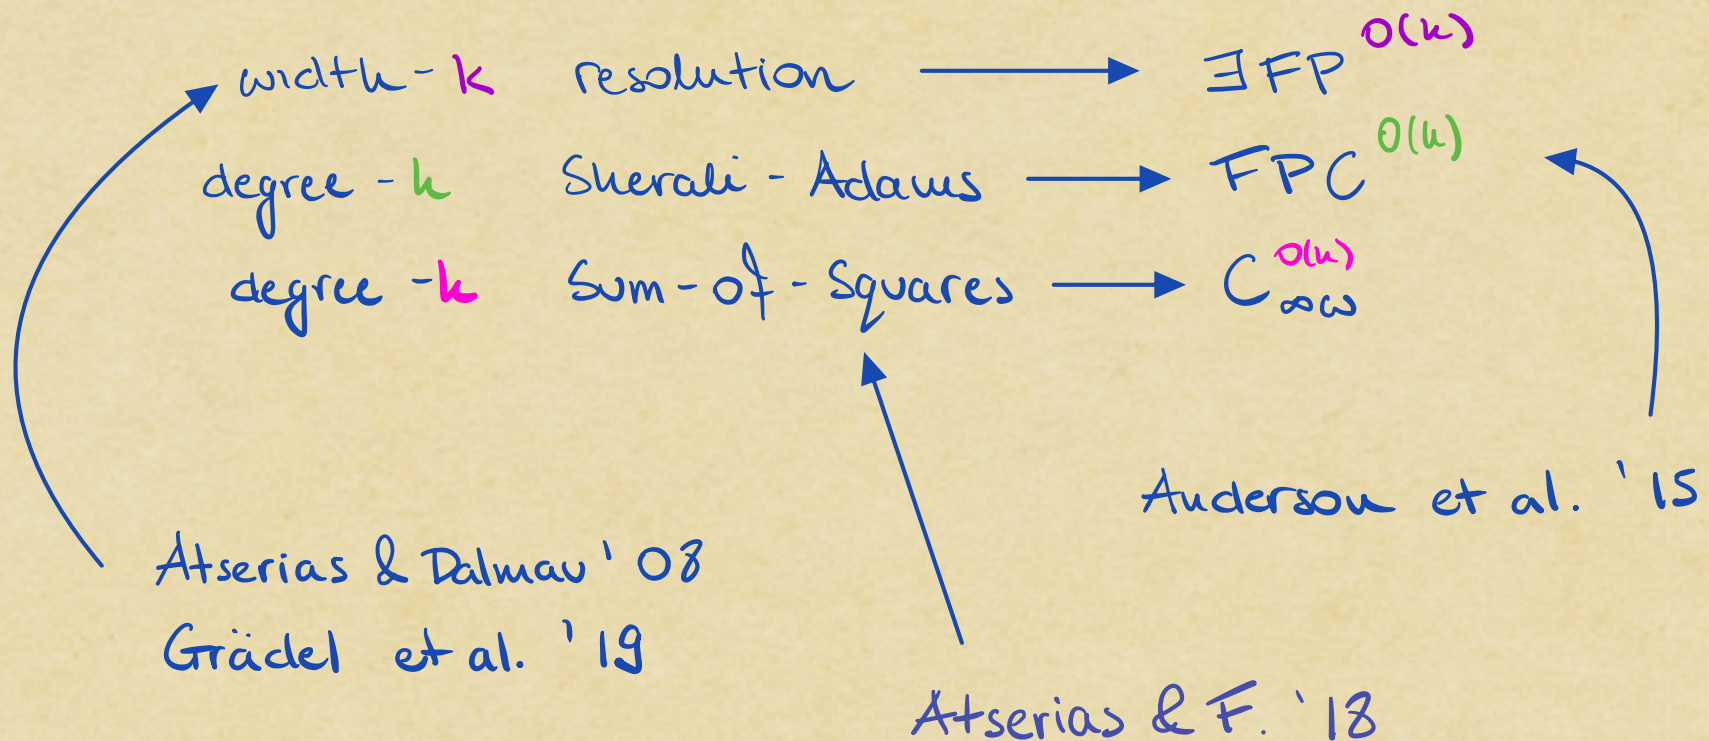 width-k resolution → ∃FP^O(k)
degree-k Sherali-Adams → FPC^O(k)
degree-k Sum-of-Squares → C^O(k)_∞ω
Anderson et al. '15
Atserias & Dalmau '08
Grädel et al. '19
Atserias & F. '18